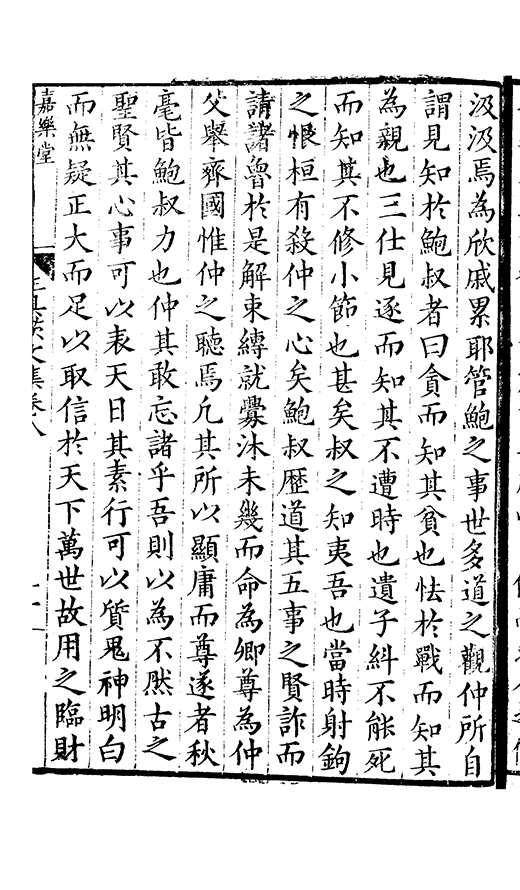 汲汲焉為欣戚累耶管鮑之事世多道之觀仲所自
謂見知於鮑叔者曰貪而知其貧也怯於戰而知其
為親也三仕見逐而知其不遭時也遺子糾不能死
而知其不修小節也甚矣叔之知夷吾也當時射鉤
之恨桓有殺仲之心矣鮑叔歷道其五事之賢詐而
請諸魯於是解束縛就釁沐未幾而命為卿尊為仲
父舉齊國惟仲之聽焉凡其所以顯庸而尊遂者秋
毫皆鮑叔力也仲其敢忘諸乎吾則以為不然古之
聖賢其心事可以表天日其素行可以質鬼神明白
而無疑正大而足以取信於天下萬世故用之臨財
嘉樂堂
文集卷八